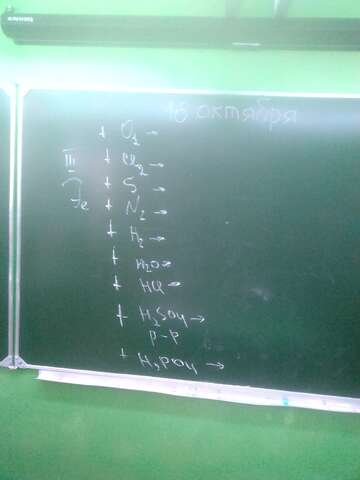 16 октября
+ O₂ →
III + Cl₂ →
+ S →
Fe + N₂ →
+ H₂ →
+ H₂O →
+ HCl →
+ H₂SO₄ →
р-р
+ H₃PO₄ →